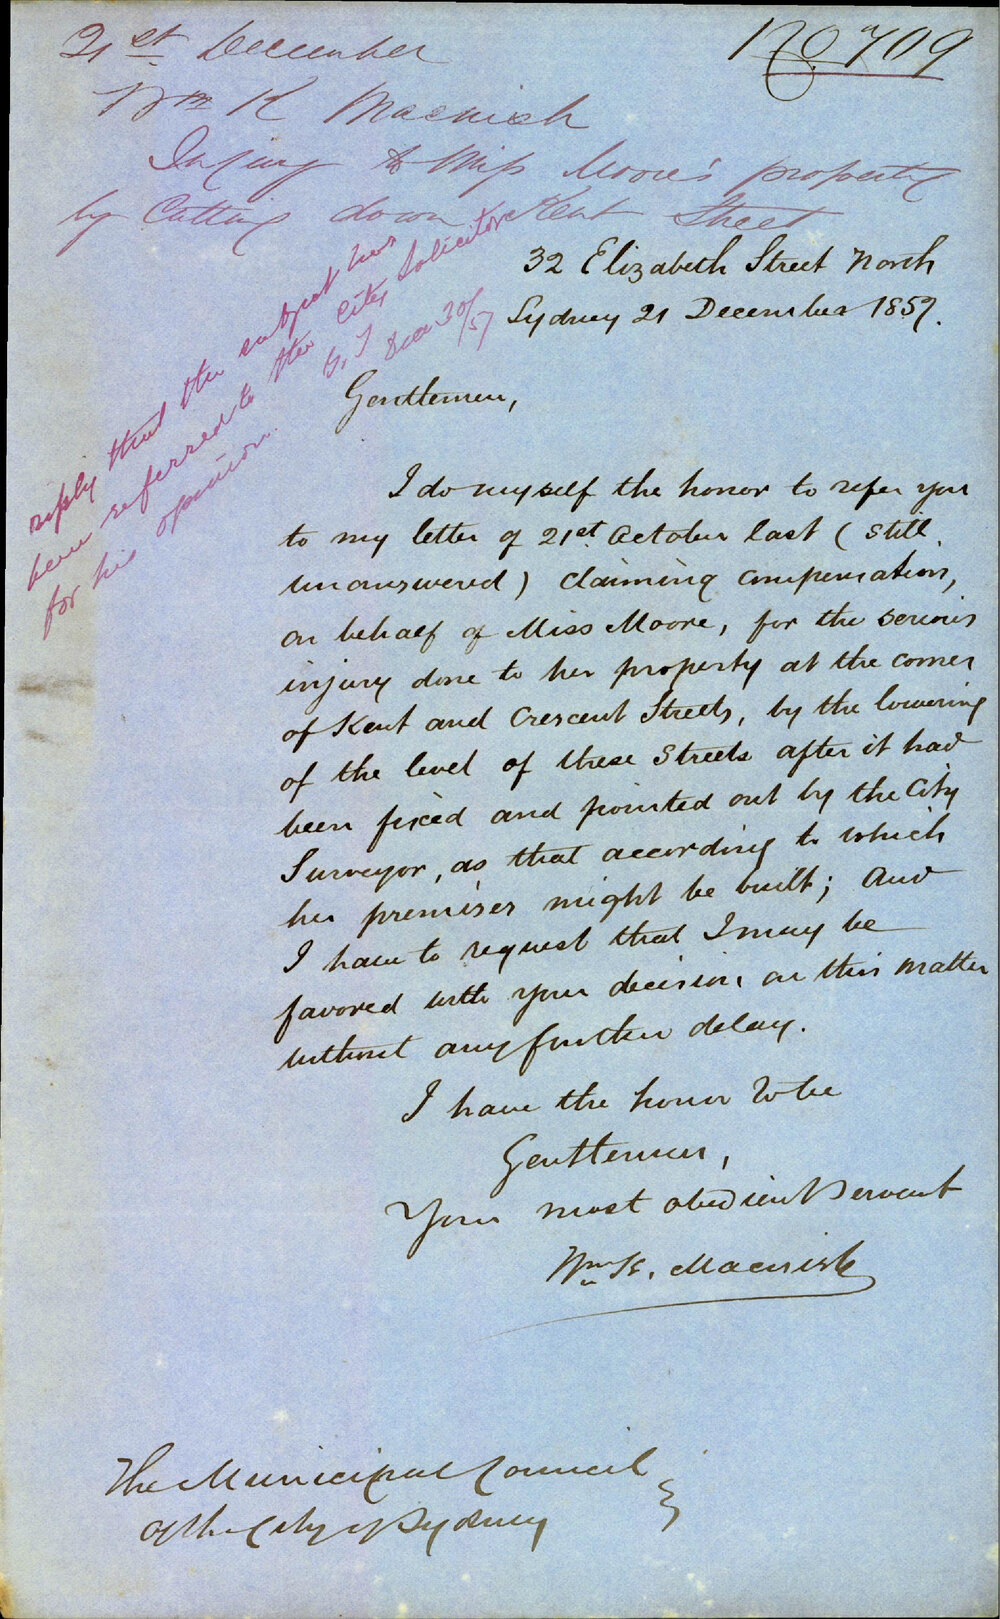 21st December
No 709
Wm K Macnish
Injury to Miss Moore's property
by Cutting down Kent Street
reply that the subject has
been referred to the City Solicitor
for his opinion.
Dec 30/57
32 Elizabeth Street North
Sydney 21 December 1857.
Gentlemen,
I do myself the honor to refer you
to my letter of 21st October last (still
unanswered) claiming compensation,
on behalf of Miss Moore, for the serious
injury done to her property at the corner
of Kent and Crescent Streets, by the lowering
of the level of these Streets after it had
been fixed and pointed out by the City
Surveyor, as that according to which
her premises might be built; and
I have to request that I may be
favored with your decision on this matter
without any further delay.
I have the honor to be
Gentlemen,
Your most obedient Servant
Wm K. Macnish
The Municipal Council
of the City of Sydney